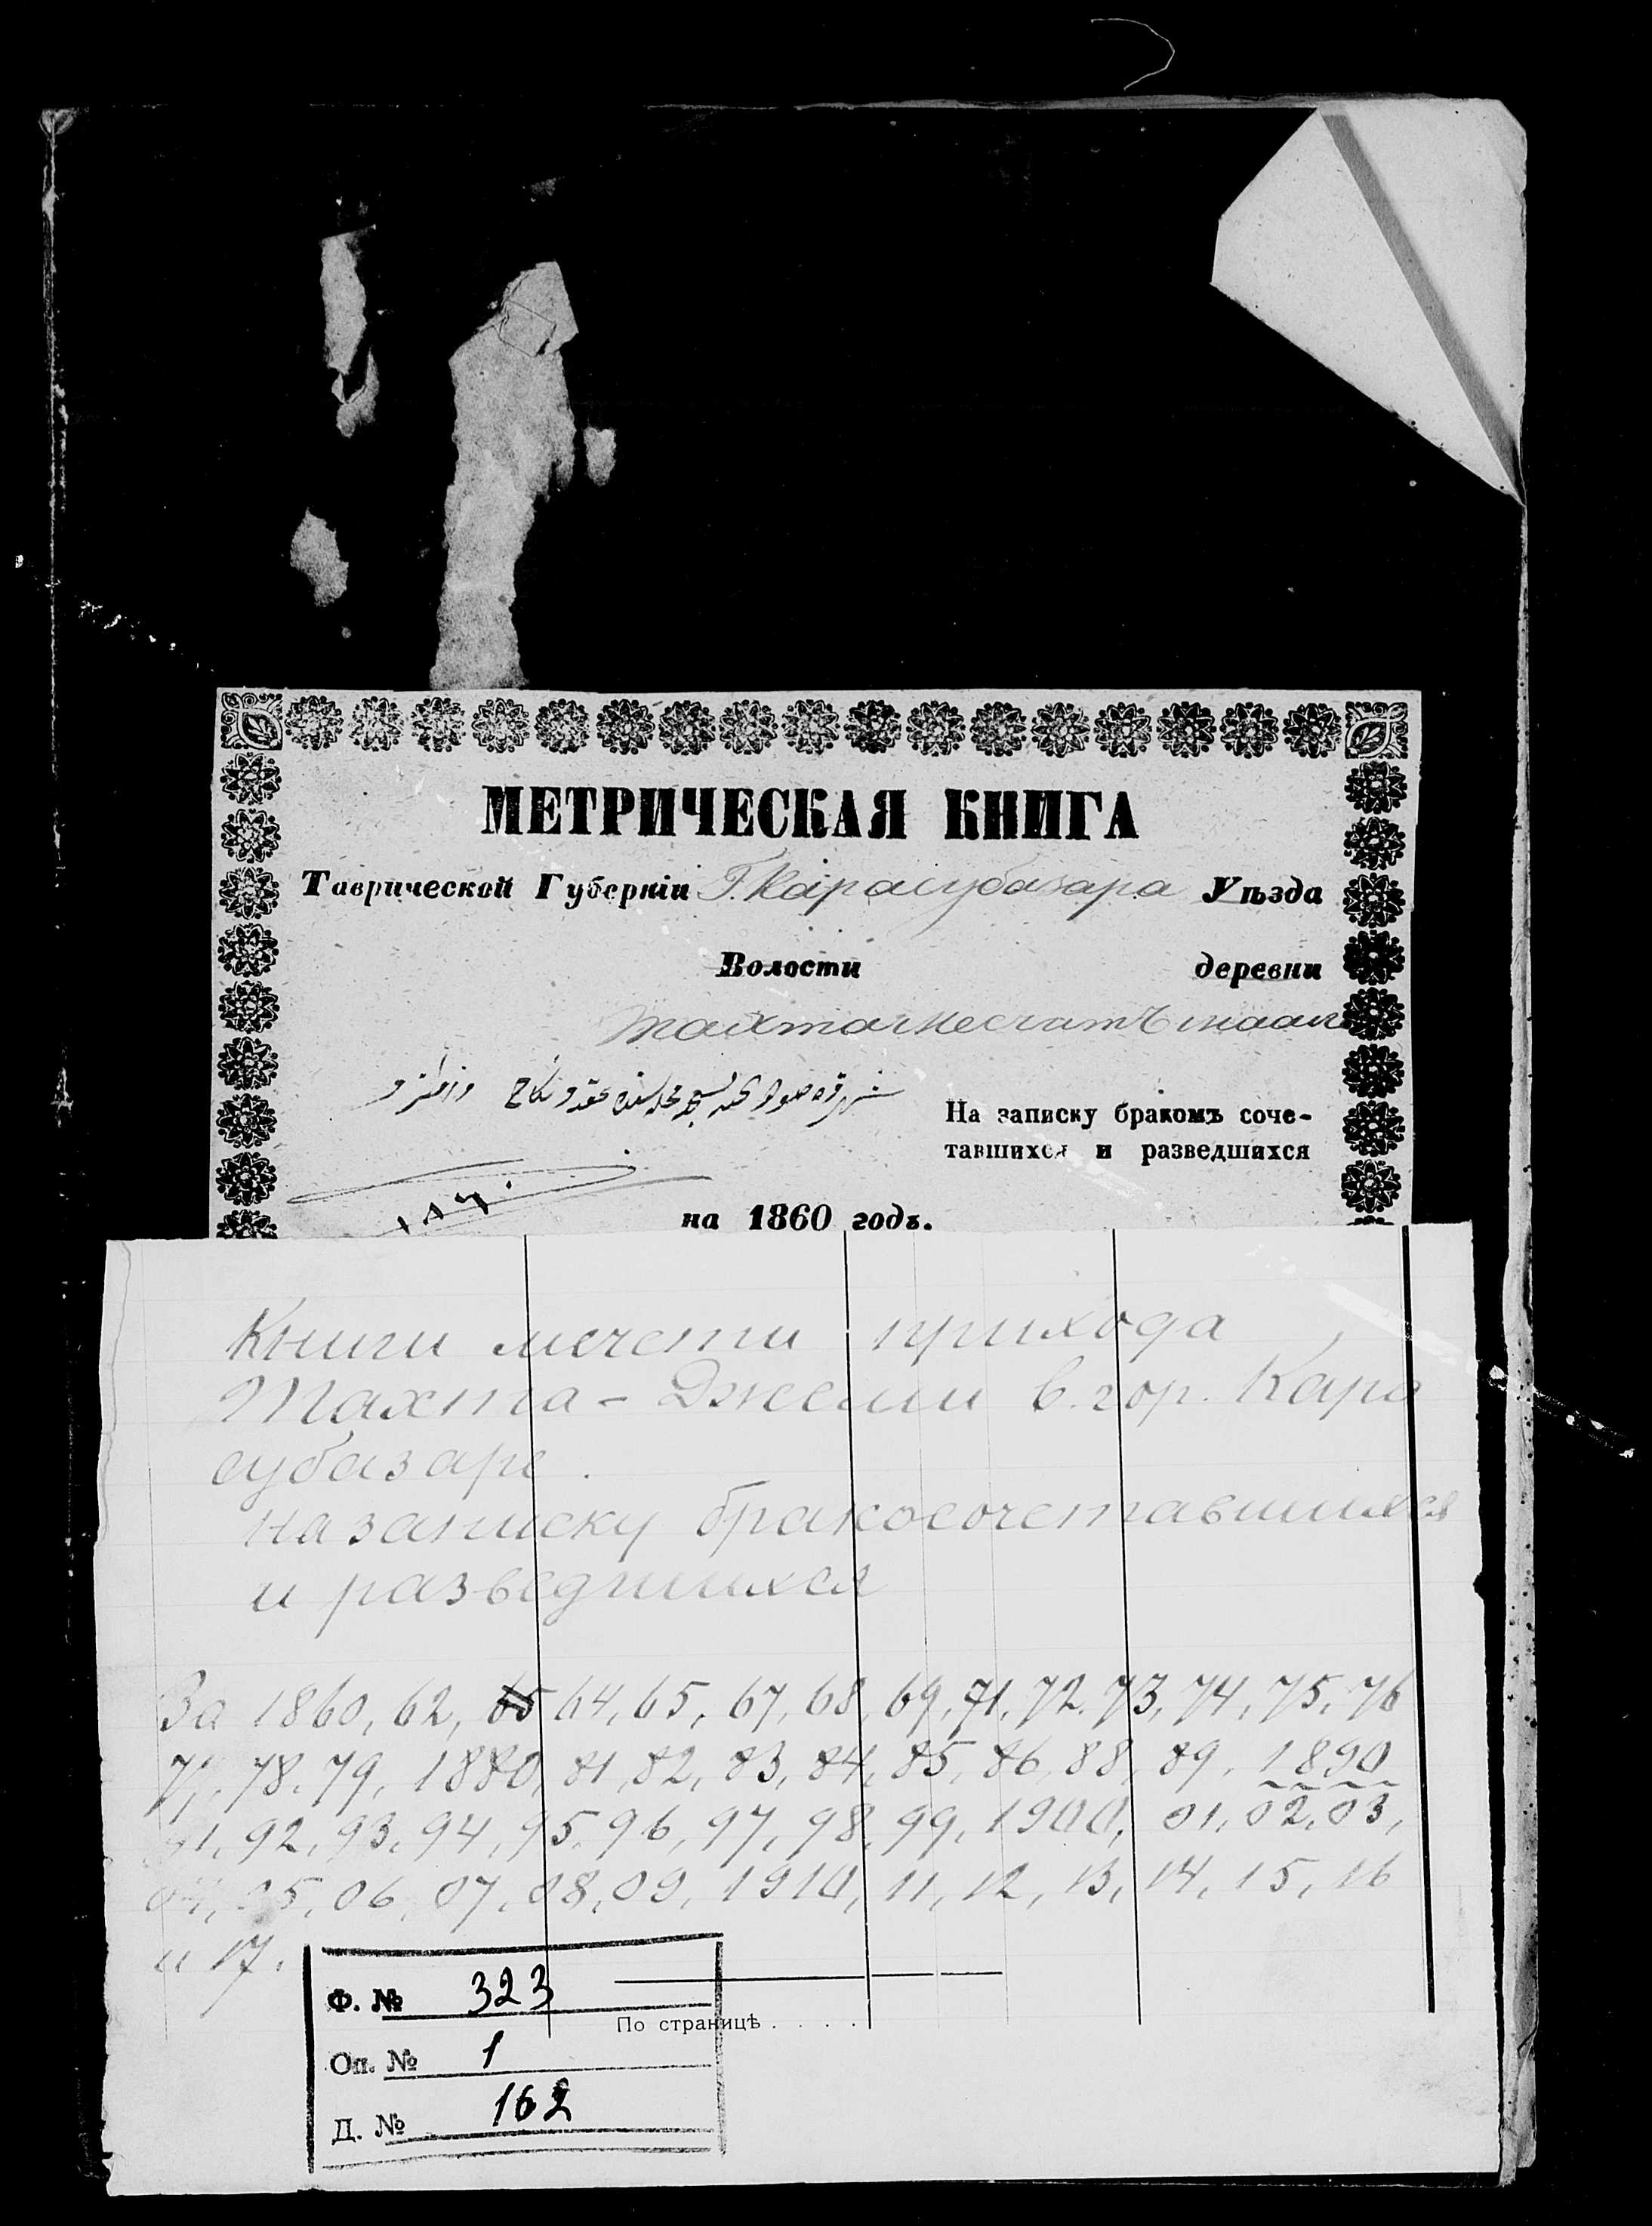 МЕТРИЧЕСКАЯ КНИГА
Таврической Губерніи Г. Карасубазара Уѣзда
Волости деревни
На запискy бракомъ соче-
тавшихся и разведшихся
١٨٦٠
на 1860 годъ.
Книги мечети прихода
Тахта-Джеми в. гор. Кара
субазаре.
на записку бракосочетавшихся
и разведшихся
За 1860, 62, 64, 65, 67, 68, 69, 71, 72. 73, 74, 75, 76
77, 78. 79, 1880, 81, 82, 83, 84, 85, 86, 88, 89, 1890
91, 92, 93, 94, 95. 96, 97, 98, 99, 1900, 01, 02, 03,
04, 05, 06, 07, 08, 09, 1910, 11, 12, 13, 14, 15, 16
и 17.
Ф. № 323
По страницѣ . . . .
Оп. № 1
Д. № 162